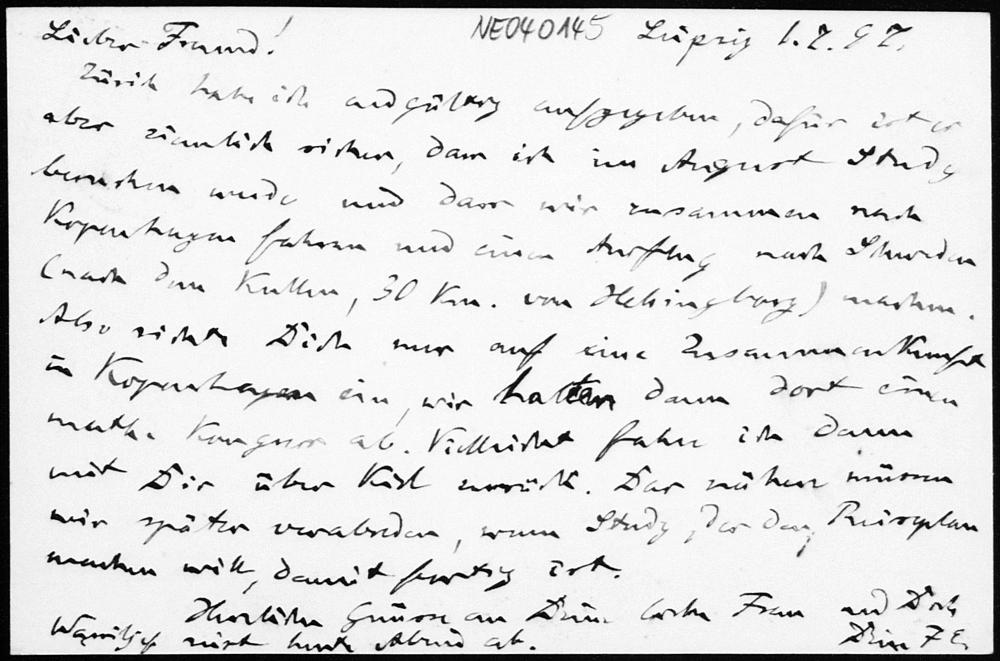 Lieber Freund! NE040145 Leipzig 1.7.97.
Zürich habe ich endgültig aufgegeben, dafür ist es
aber ziemlich sicher, dass ich im August Study
besuchen werde und dass wir zusammen nach
Kopenhagen fahren und einen Ausflug nach Schweden
(nach dem Kullen, 30 Km. von Helsingborg) machen.
Also richte Dich nur auf eine Zusammenkunft
in Kopenhagen ein, wir halten dann dort einen
math. Kongress ab. Vielleicht fahre ich dann
mit Dir über Kiel zurück. Das nähere müssen
wir später verabreden, wenn Study, der den Reiseplan
machen will, damit fertig ist.
Herzliche Grüsse an Deine liebe Frau und Dich
reist heute Abend ab. Dein F E.